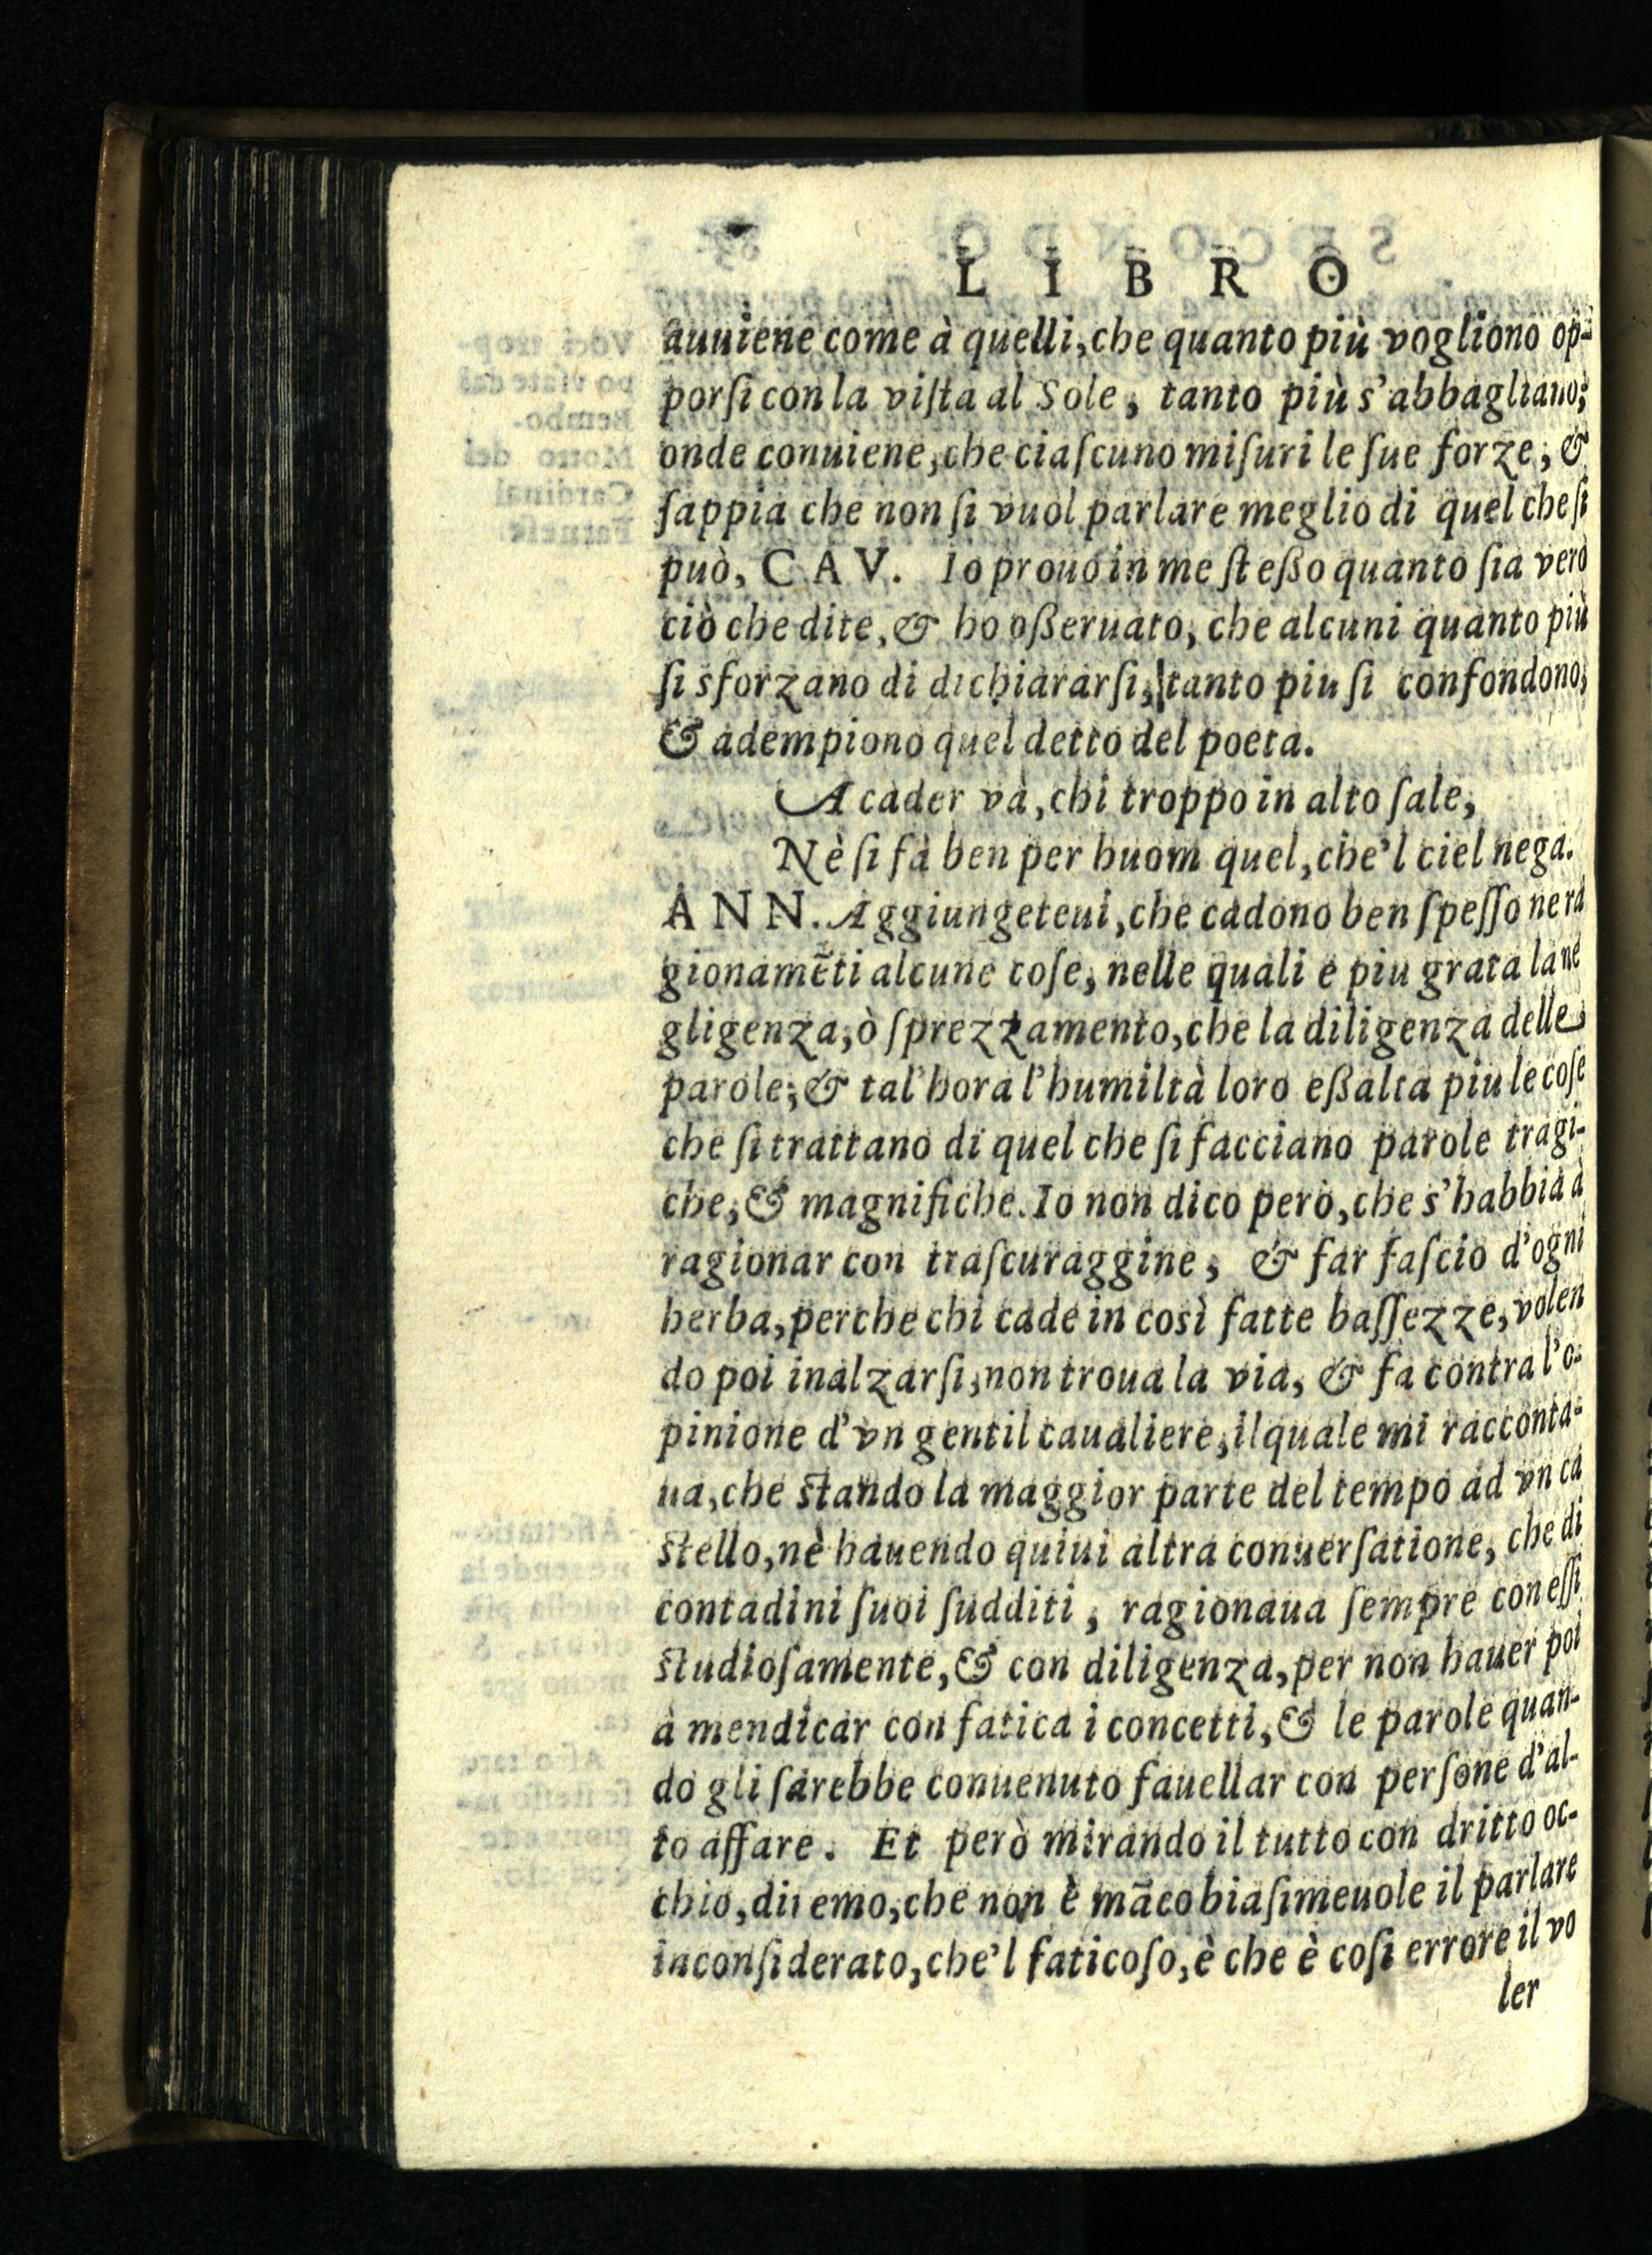 LIBRO
auuiene come à quelli, che quanto più vogliono op-
porſi con la viſta al Sole, tanto più s'abbagliano;
onde conuiene, che ciaſcuno miſuri le ſue forze, &
ſappia che non ſi vuol parlare meglio di quel che ſi
può, CAV. Io prouo in me ſteßo quanto ſia vero
ciò che dite, & ho oßeruato, che alcuni quanto più
ſi sforzano di dichiararſi, tanto piu ſi confondono,
& adempiono quel detto del poeta.
A cader và, chi troppo in alto ſale,
Nè ſi fà ben per huom quel, che'l ciel nega.
ANN. Aggiungeteui, che cadono ben ſpeſſo ne ra
gionamẽti alcune coſe, nelle quali e piu grata la ne
gligenza, ò ſprezzamento, che la diligenza delle
parole; & tal'hora l'humiltà loro eßalta piu le coſe
che ſi trattano di quel che ſi facciano parole tragi-
che, & magnifiche. Io non dico però, che s'habbia à
ragionar con traſcuraggine, & far faſcio d'ogni
herba, perche chi cade in così fatte baſſezze, volen
do poi inalzarſi, non troua la via, & fa contra l'o-
pinione d'vn gentil caualiere, ilquale mi racconta-
ua, che ſtando la maggior parte del tempo ad vn ca
ſtello, nè hauendo quiui altra conuerſatione, che di
contadini ſuoi ſudditi, ragionaua ſempre con eſſi
ſtudioſamente, & con diligenza, per non hauer poi
à mendicar con fatica i concetti, & le parole quan-
do gli ſarebbe conuenuto fauellar con perſone d'al-
to affare. Et però mirando il tutto con dritto oc-
chio, diremo, che non è mãco biaſimeuole il parlare
inconſiderato, che'l faticoſo, è che è coſi errore il vo
ler